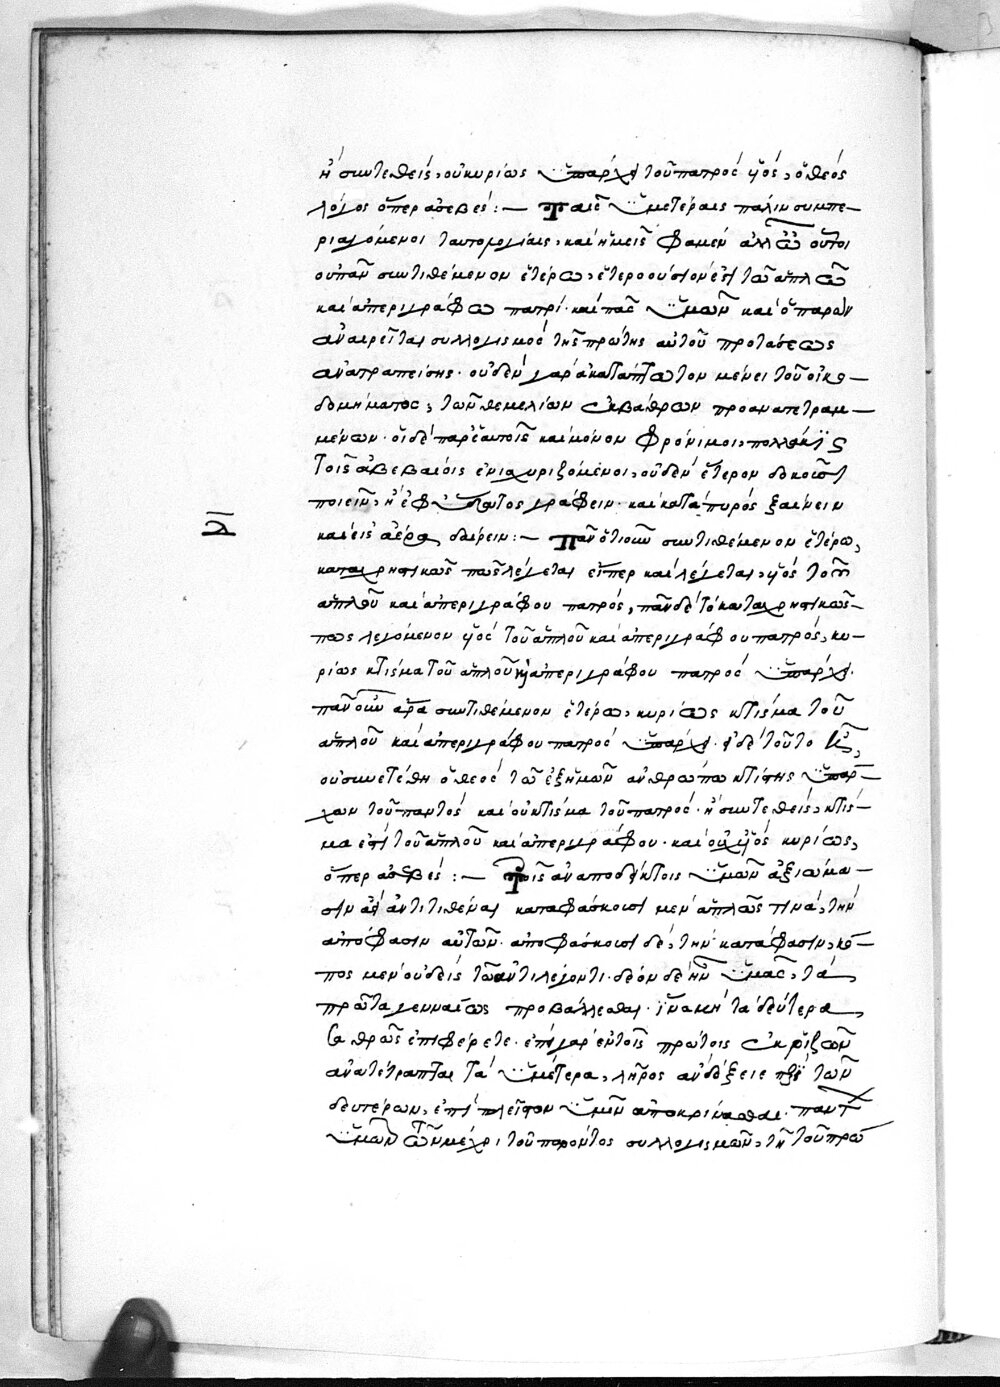 ἢ συντεθείς, οὐ κυρίως ὑπάρχει τοῦ πατρός υἱός, ὁ θεός
λόγος ὅπερ ἀσεβές :—  Ταῖς ὑμετέραις πάλιν συμπε—
ριαγόμενοι ταυτολογίαις, καὶ ἡμεῖς φαμεν ἀλλ' οὗτοι
οὐ πᾶν συντιθέμενον ἑτέρω, ἑτεροούσιόν ἐστι τῶ ἁπλῶ
καὶ ἀπεριγράφω πατρί· καὶ πᾶς ὑμῶν καὶ ὁ παρὼν
ἀναιρεῖται συλλογισμός τῆς πρώτης αὐτοῦ προτάσεως
ἀνατραπείσης· οὐδὲν γὰρ ἀκατάπτωτον μένει τοῦ οἰκο—
δομήματος, τῶν θεμελίων ἐκ βάθρων προανατετραμ—
μένων· οἱ δὲ παρ' ἑαυτοῖς καὶ μόνον φρόνιμοι, πολλάκις
τοῖς ἀβεβαίοις ἐνισχυριζόμενοι, οὐδὲν ἕτερον δοκοῦσι
ποιεῖν, ἢ ἐφ' ὕδατος γράφειν· καὶ κατὰ πυρός ξαίνειν
καὶ εἰς ἀέρα δαίρειν :—  Πᾶν ὁτιοῦν συντιθέμενον ἑτέρω,
λ
καταχρηστικῶς πως λέγεται εἴπερ καὶ λέγεται, υἱός τοῦ
ἁπλοῦ καὶ ἀπεριγράφου πατρός, πᾶν δὲ τὸ καταχρηστικῶς—
πως λεγόμενον υἱός τοῦ ἁπλοῦ καὶ ἀπεριγράφου πατρός, κυ—
ρίως κτίσμα τοῦ ἁπλοῦ καὶ ἀπεριγράφου πατρός ὑπάρχει·
πᾶν οὖν ἄρα συντιθέμενον ἑτέρω, κυρίως κτίσμα τοῦ
ἁπλοῦ καὶ ἀπεριγράφου πατρός ὑπάρχει· εἰ δὲ τοῦτο
οὐ συνετέθη ὁ θεός τῶ ἐξ ἡμῶν ἀνθρώπω κτίστης ὑπάρ—
χων τοῦ παντός καὶ οὐ κτίσμα τοῦ πατρός· ἢ συντεθείς, κτίσ—
μα ἐστὶ τοῦ ἁπλοῦ καὶ ἀπεριγράφου· καὶ οὐχ υἱός κυρίως,
ὅπερ ἀσεβές :—  Τοῖς ἀναποδείκτοις ὑμῶν ἀξιώμα—
σιν ἀεὶ ἀντιτιθέναι καταφάσκουσι μὲν ἁπλῶς τινά, τὴν
ἀπόφασιν αὐτῶν· ἀποφάσκουσι δὲ, τὴν κατάφασιν, κό—
πος μὲν οὐδεὶς τῶ ἀντιλέγοντι· δέον δὲ ἦν ὑμᾶς, τὰ
πρῶτα γενναίως προβάλλεσθαι· ἵνα μὴ τὰ δεύτερα
σαθρῶς ἐπιφέρετε· ἐπεὶ γὰρ ἐν τοῖς πρώτοις ἐκ ῥιζῶν
ἀνατέτραπται τὰ ὑμέτερα, λῆρος ἂν δόξειε περὶ τῶν
δευτέρων, ἐπὶ πλεῖστον ὑμῖν ἀποκρίνασθαι· πάντ
ὑμῶν τῶν μέχρι τοῦ παρόντος συλλογισμῶν, τῆ τοῦ πρώ